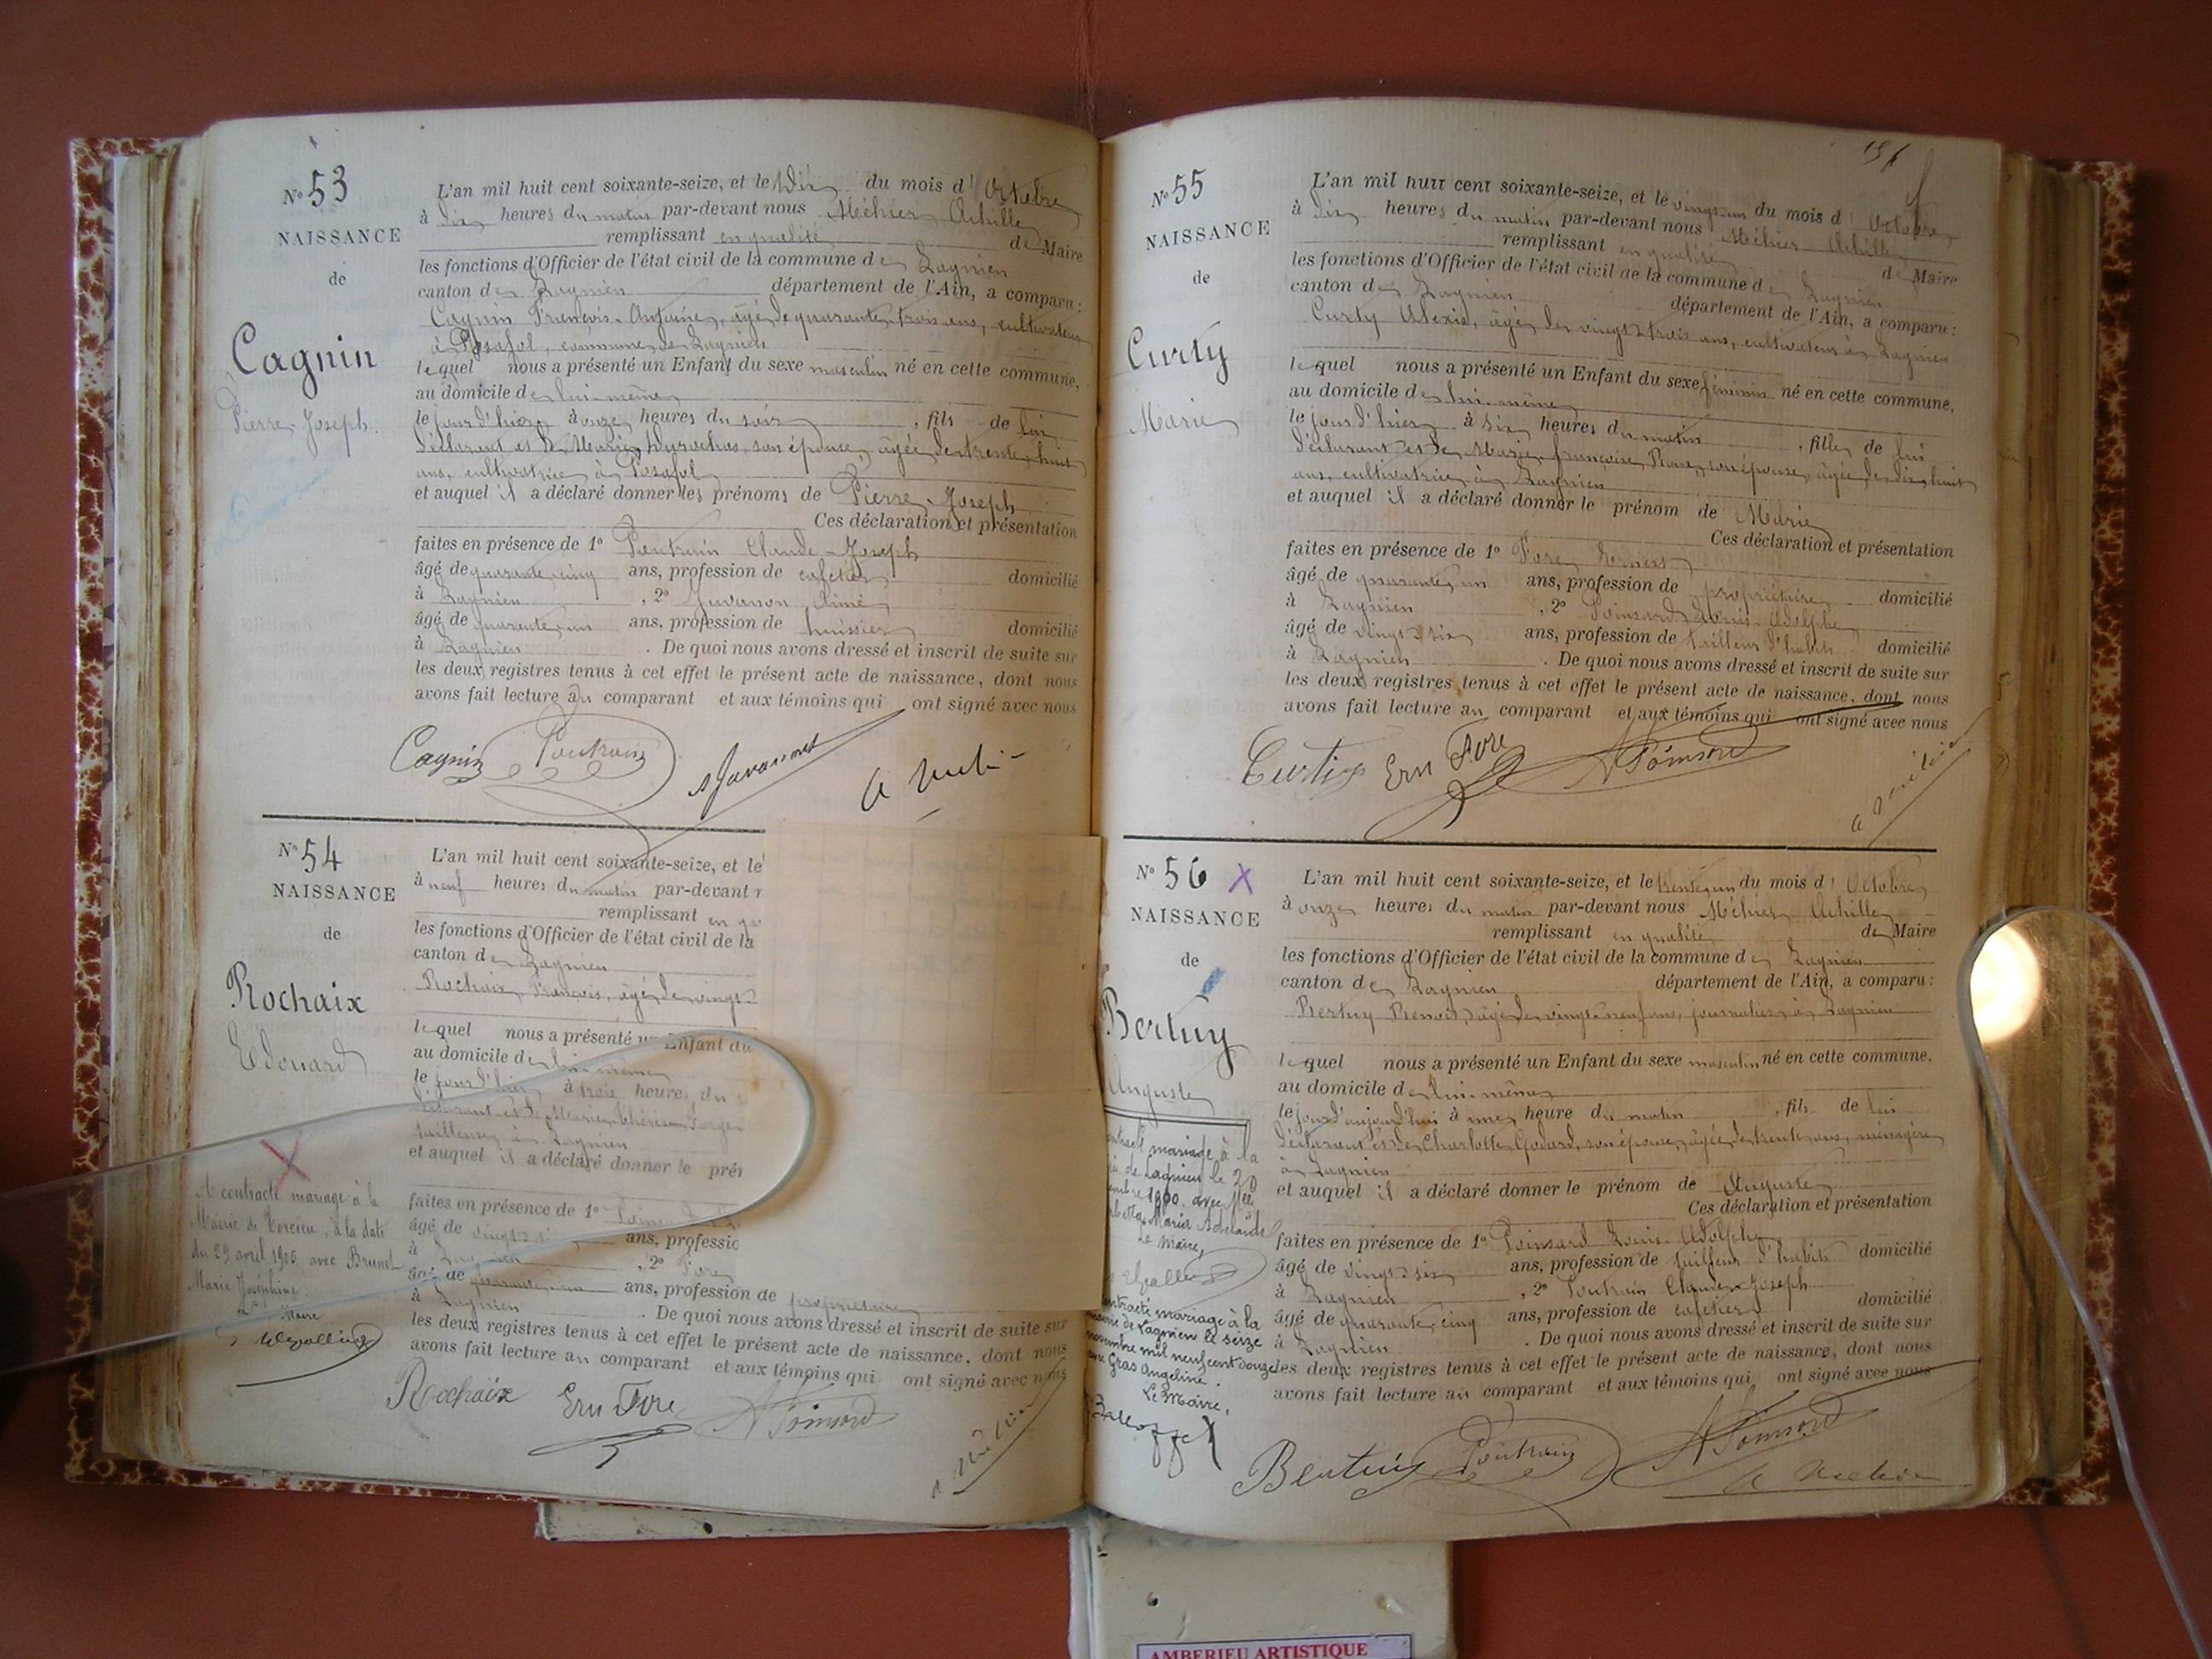 N° 53
NAISSANCE
de
Cagnin
Pierre Joseph.
L'an mil huit cent soixante-seize, et le Dix du mois d' Octobre
à dix heures du matin par-devant nous Méhier Achille
remplissant en qualité de Maire
les fonctions d'Officier de l'état civil de la commune de Lagnieu
canton de Lagnieu département de l'Ain, a comparu :
Cagnin François-Antoine, âgé de quarante trois ans, cultivateur
à Posafol, commune de Lagnieu
lequel nous a présenté un Enfant du sexe masculin né en cette commune,
au domicile de lui-même
le jour d'hier à onze heures du soir, fils de lui
déclarant et de Marie son épouse, âgée de trente huit
ans, cultivatrice à Posafol
et auquel il a déclaré donner les prénoms de Pierre-Joseph
Ces déclaration et présentation
faites en présence de 1° Poutrain Claude-Joseph
âgé de quarante cinq ans, profession de cafetier domicilié
à Lagnieu, 2° Juvanon Aimé
âgé de quarante un ans, profession de huissier domicilié
à Lagnieu. De quoi nous avons dressé et inscrit de suite sur
les deux registres tenus à cet effet le présent acte de naissance, dont nous
avons fait lecture au comparant et aux témoins qui ont signé avec nous
Cagnin Poutrain Juvanon
N° 54
NAISSANCE
de
Rochaix
Edouard
L'an mil huit cent soixante-seize, et le
à neuf heures du matin par-devant
remplissant en
les fonctions d'Officier de l'état civil de la
canton de Lagnieu
Rochaix François, âgé de vingt
lequel nous a présenté un Enfant du
au domicile de lui-même
le jour d'hier à trois heures du
déclarant et de Marie Thérèse
tailleuse à Lagnieu
et auquel il a déclaré donner le
faites en présence de 1°
âgé de vingt ans, professio
à Lagnieu, 2° Fore
âgé de quarante un ans, profession de propriétaire
à Lagnieu. De quoi nous avons dressé et inscrit de suite sur
les deux registres tenus à cet effet le présent acte de naissance, dont nous
avons fait lecture au comparant et aux témoins qui ont signé avec nous
A contracté mariage à la
Mairie de Torcieu, à la date
du 29 avril 1905 avec Brunet
Marie Joséphine.
Le Maire
Rochaix Ern Fore A Poinsard
N° 55
NAISSANCE
de
Curty
Marie
L'an mil huit cent soixante-seize, et le vingt un du mois d' Octobre
à dix heures du matin par-devant nous Méhier Achille
remplissant en qualité de Maire
les fonctions d'Officier de l'état civil de la commune de Lagnieu
canton de Lagnieu département de l'Ain, a comparu :
Curty Alexis, âgé de vingt trois ans, cultivateur à Lagnieu
lequel nous a présenté un Enfant du sexe féminin né en cette commune,
au domicile de lui-même
le jour d'hier à six heures du matin, fille de lui
déclarant et de Marie françoise Roux, son épouse, âgée de dix huit
ans, cultivatrice à Lagnieu
et auquel il a déclaré donner le prénom de Marie
Ces déclaration et présentation
faites en présence de 1° Fore Ernest
âgé de quarante un ans, profession de propriétaire domicilié
à Lagnieu, 2° Poinsard Louis-Adolphe
âgé de vingt six ans, profession de tailleur d'habits domicilié
à Lagnieu. De quoi nous avons dressé et inscrit de suite sur
les deux registres tenus à cet effet le présent acte de naissance, dont nous
avons fait lecture au comparant et aux témoins qui ont signé avec nous
Ern Fore A Poinsard
N° 56 X
NAISSANCE
de
Bertuy
Auguste
L'an mil huit cent soixante-seize, et le trente un du mois d' Octobre
à onze heures du matin par-devant nous Méhier Achille
remplissant en qualité de Maire
les fonctions d'Officier de l'état civil de la commune de Lagnieu
canton de Lagnieu département de l'Ain, a comparu :
Bertuy Benoit, âgé de vingt neuf ans, journalier à Lagnieu
lequel nous a présenté un Enfant du sexe masculin né en cette commune,
au domicile de lui-même
le jour d'aujourd'hui à une heure du matin, fils de lui
déclarant et de Charlotte Godard, son épouse, âgée de trente ans, ménagère
à Lagnieu
et auquel il a déclaré donner le prénom de Auguste
Ces déclaration et présentation
faites en présence de 1° Poinsard Louis-Adolphe
âgé de vingt six ans, profession de tailleur d'habits domicilié
à Lagnieu, 2° Poutrain Claude-Joseph
âgé de quarante cinq ans, profession de cafetier domicilié
à Lagnieu. De quoi nous avons dressé et inscrit de suite sur
les deux registres tenus à cet effet le présent acte de naissance, dont nous
avons fait lecture au comparant et aux témoins qui ont signé avec nous
mariage à la
de Lagnieu le 20
1900. avec Mlle
Marie Adélaïde
Le Maire,
contracté mariage à la
mairie de Lagnieu le seize
novembre mil neuf cent douze
avec Gras Angeline.
Le Maire,
Poutrain A Poinsard
AMBERIEU ARTISTIQUE